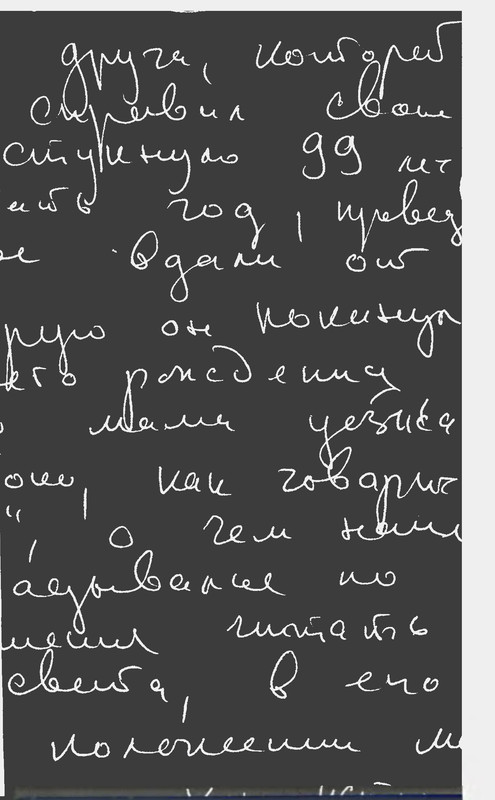 друга, которы
справил свои
стукнуло 99 ле
ать год, провед
вдали от
рую он покинул
его рождения
мама уезжа
как говарив
", о чем
адывался по
читать
света, в его
положении